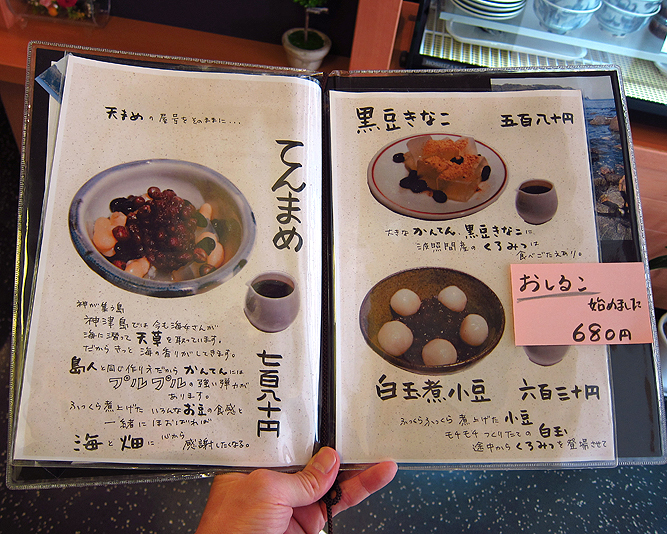 天まめの屋号をそのままに...
てんまめ
神が集う島
神津島では今も海女さんが
海に潜って天草を取っています。
だからきっと海の香りがしてきます。
島人と同じ作り方だからかんてんには
プルプルの強い弾力が
あります。
ふっくら煮上げたいろんなお豆の食感と
一緒にほおばれば
海と畑に心から感謝したくなる。
七百八十円
黒豆きなこ 五百八十円
大きなかんてん、黒豆きなこに
波照間産のくろみつは
食べごたえあり。
おしるこ
始めました
680円
白玉煮小豆 六百三十円
ふっくらふっくら煮上げた小豆
モチモチつくりたての白玉
途中からくろみつを登場させて